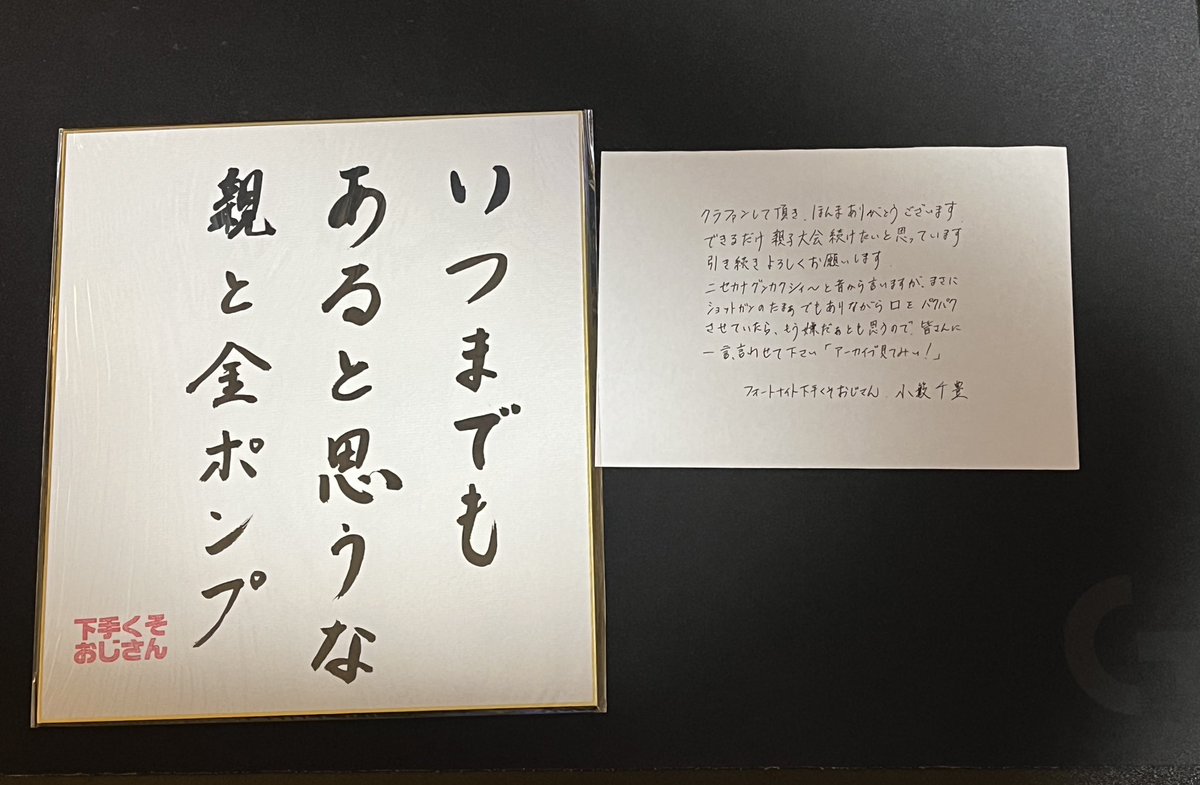 いつまでも
あると思うな
親と金ポンプ
下手くそ
おじさん
クラファンして頂き、ほんまありがとうございます
できるだけ親子大会続けたいと思っています
引き続きよろしくお願いします
ニセカナグンカクシィ〜と昔から言いますが、まさに
ショットガンのたまぁでもありながら口をパクパク
させていたら、もう嫌だぁとも思うので皆さんに
一言、言わせて下さい「アーカイブ見てみぃ!」
フォートナイト下手くそおじさん 小籔千豊